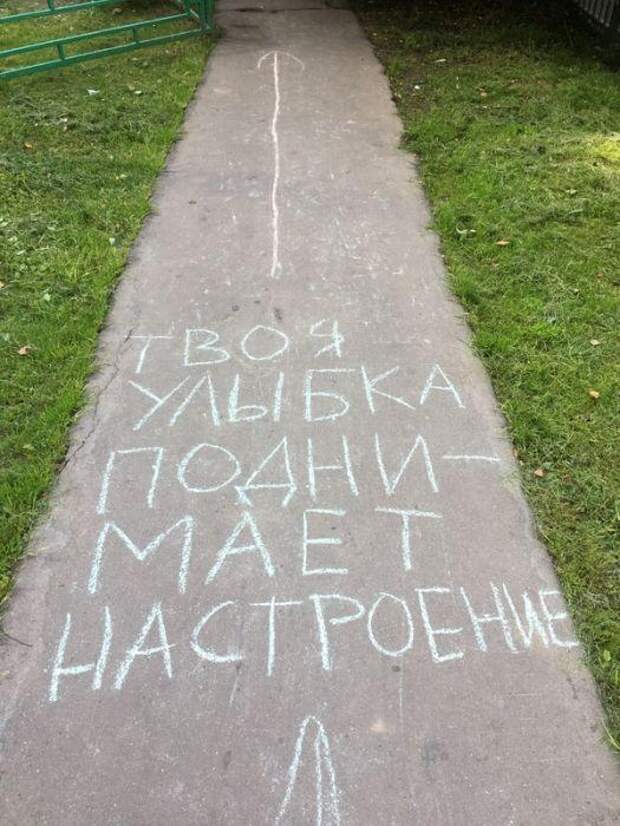 ТВОЯ
УЛЫБКА
ПОДНИ-
МАЕТ
НАСТРОЕНИЕ